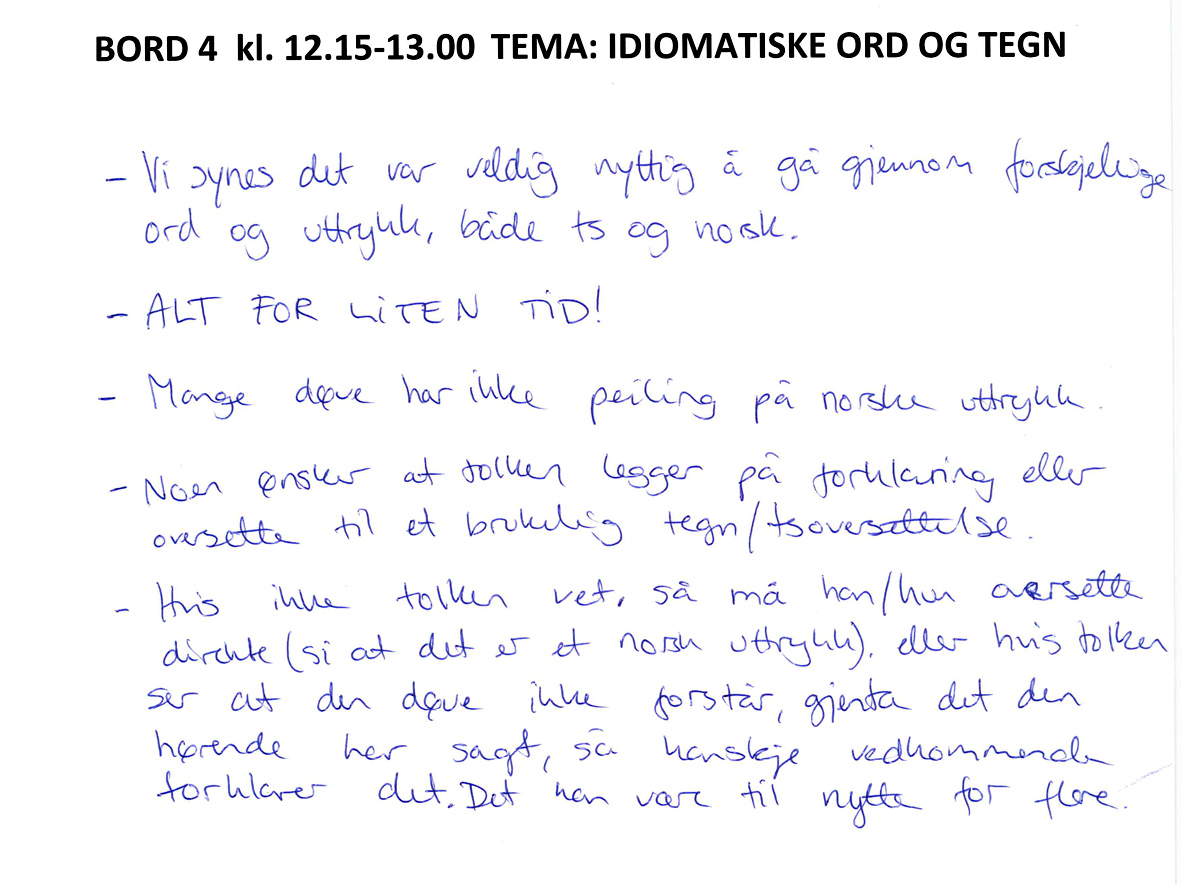 BORD 4 kl. 12.15-13.00 TEMA: IDIOMATISKE ORD OG TEGN
- Vi synes det var veldig nyttig å gå gjennom forskjellige
ord og uttrykk, både ts og norsk.
- ALT FOR LITEN TID!
- Mange døve har ikke peiling på norske uttrykk.
- Noen ønsker at tolken legger på forklaring eller
oversette til et brukelig tegn/tsoversettelse.
- Hvis ikke tolken vet, så må han/hun oversette
direkte (si at det er et norsk uttrykk). eller hvis tolken
ser at den døve ikke forstår, gjenta det den
hørende har sagt, så kanskje vedkommende
forklarer det. Det kan være til nytte for flere.